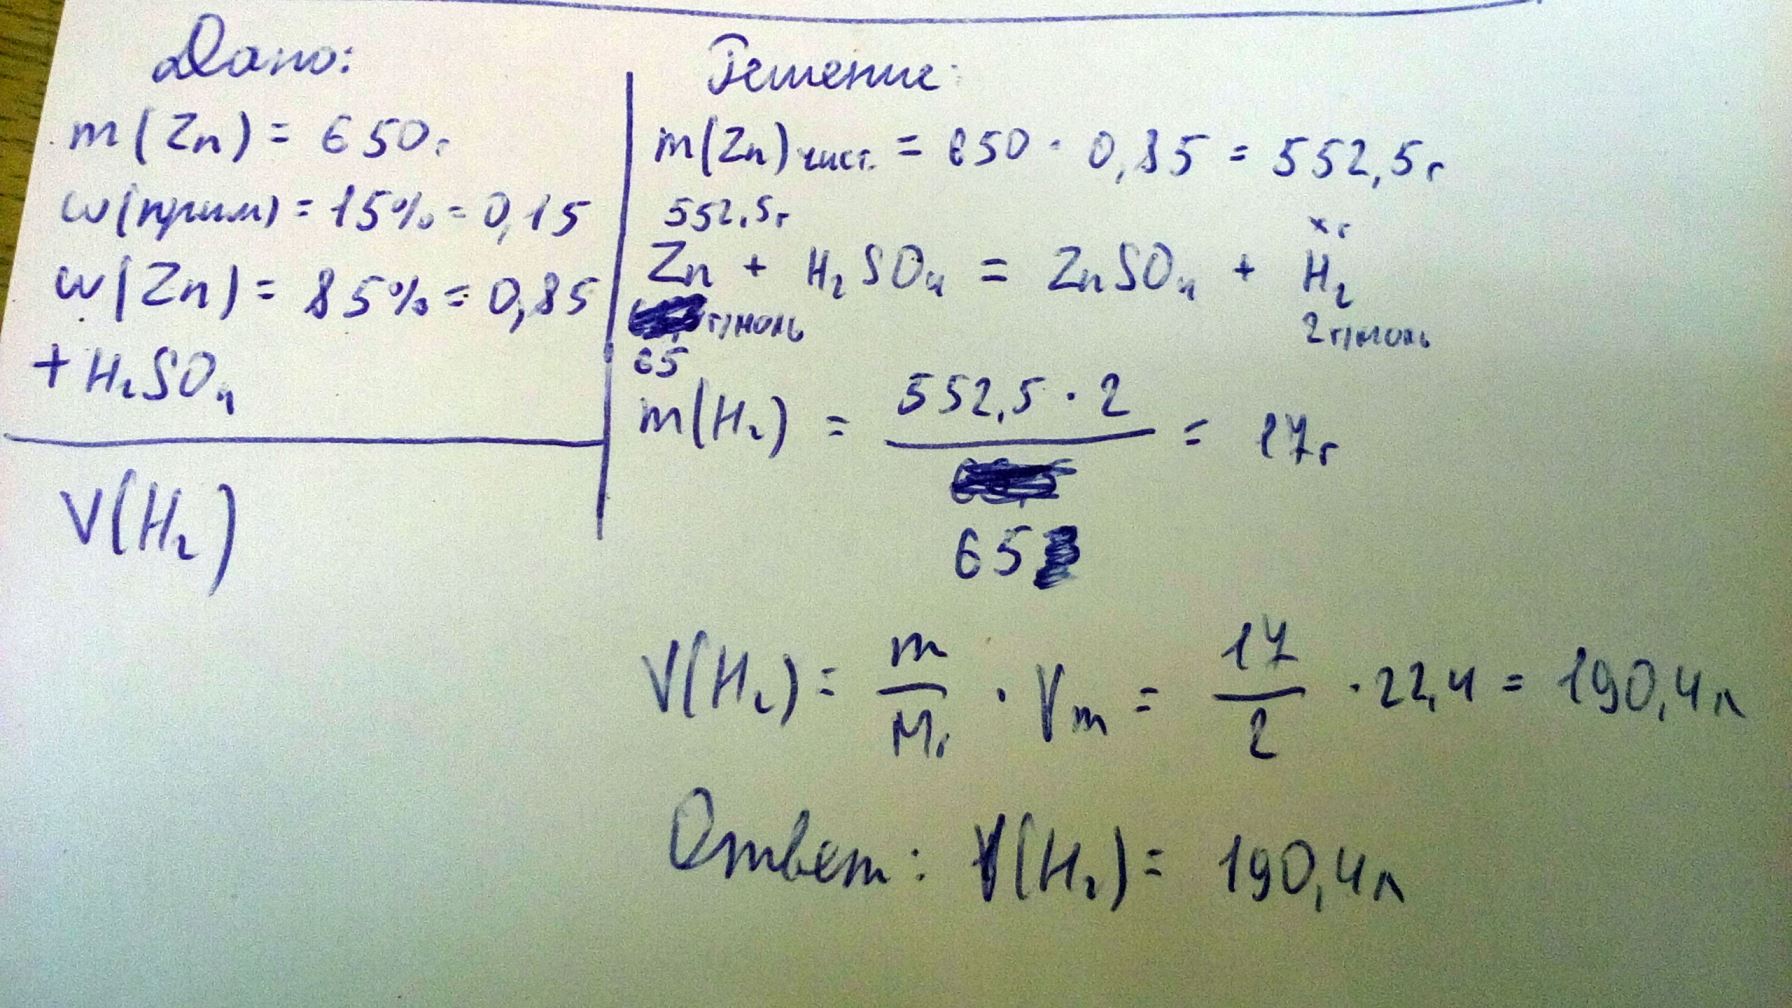 Дано:
m(Zn) = 650г
w(прим) = 15% = 0,15
w(Zn) = 85% = 0,85
+ H₂SO₄
V(H₂)
Решение:
m(Zn) чист. = 650 · 0,85 = 552,5г
552,5г xг
Zn + H₂SO₄ = ZnSO₄ + H₂
г/моль 2г/моль
65
m(H₂) = 552,5 · 2 / 65 = 17г
V(H₂) = m/M · Vm = 17/2 · 22,4 = 190,4л
Ответ: V(H₂) = 190,4л